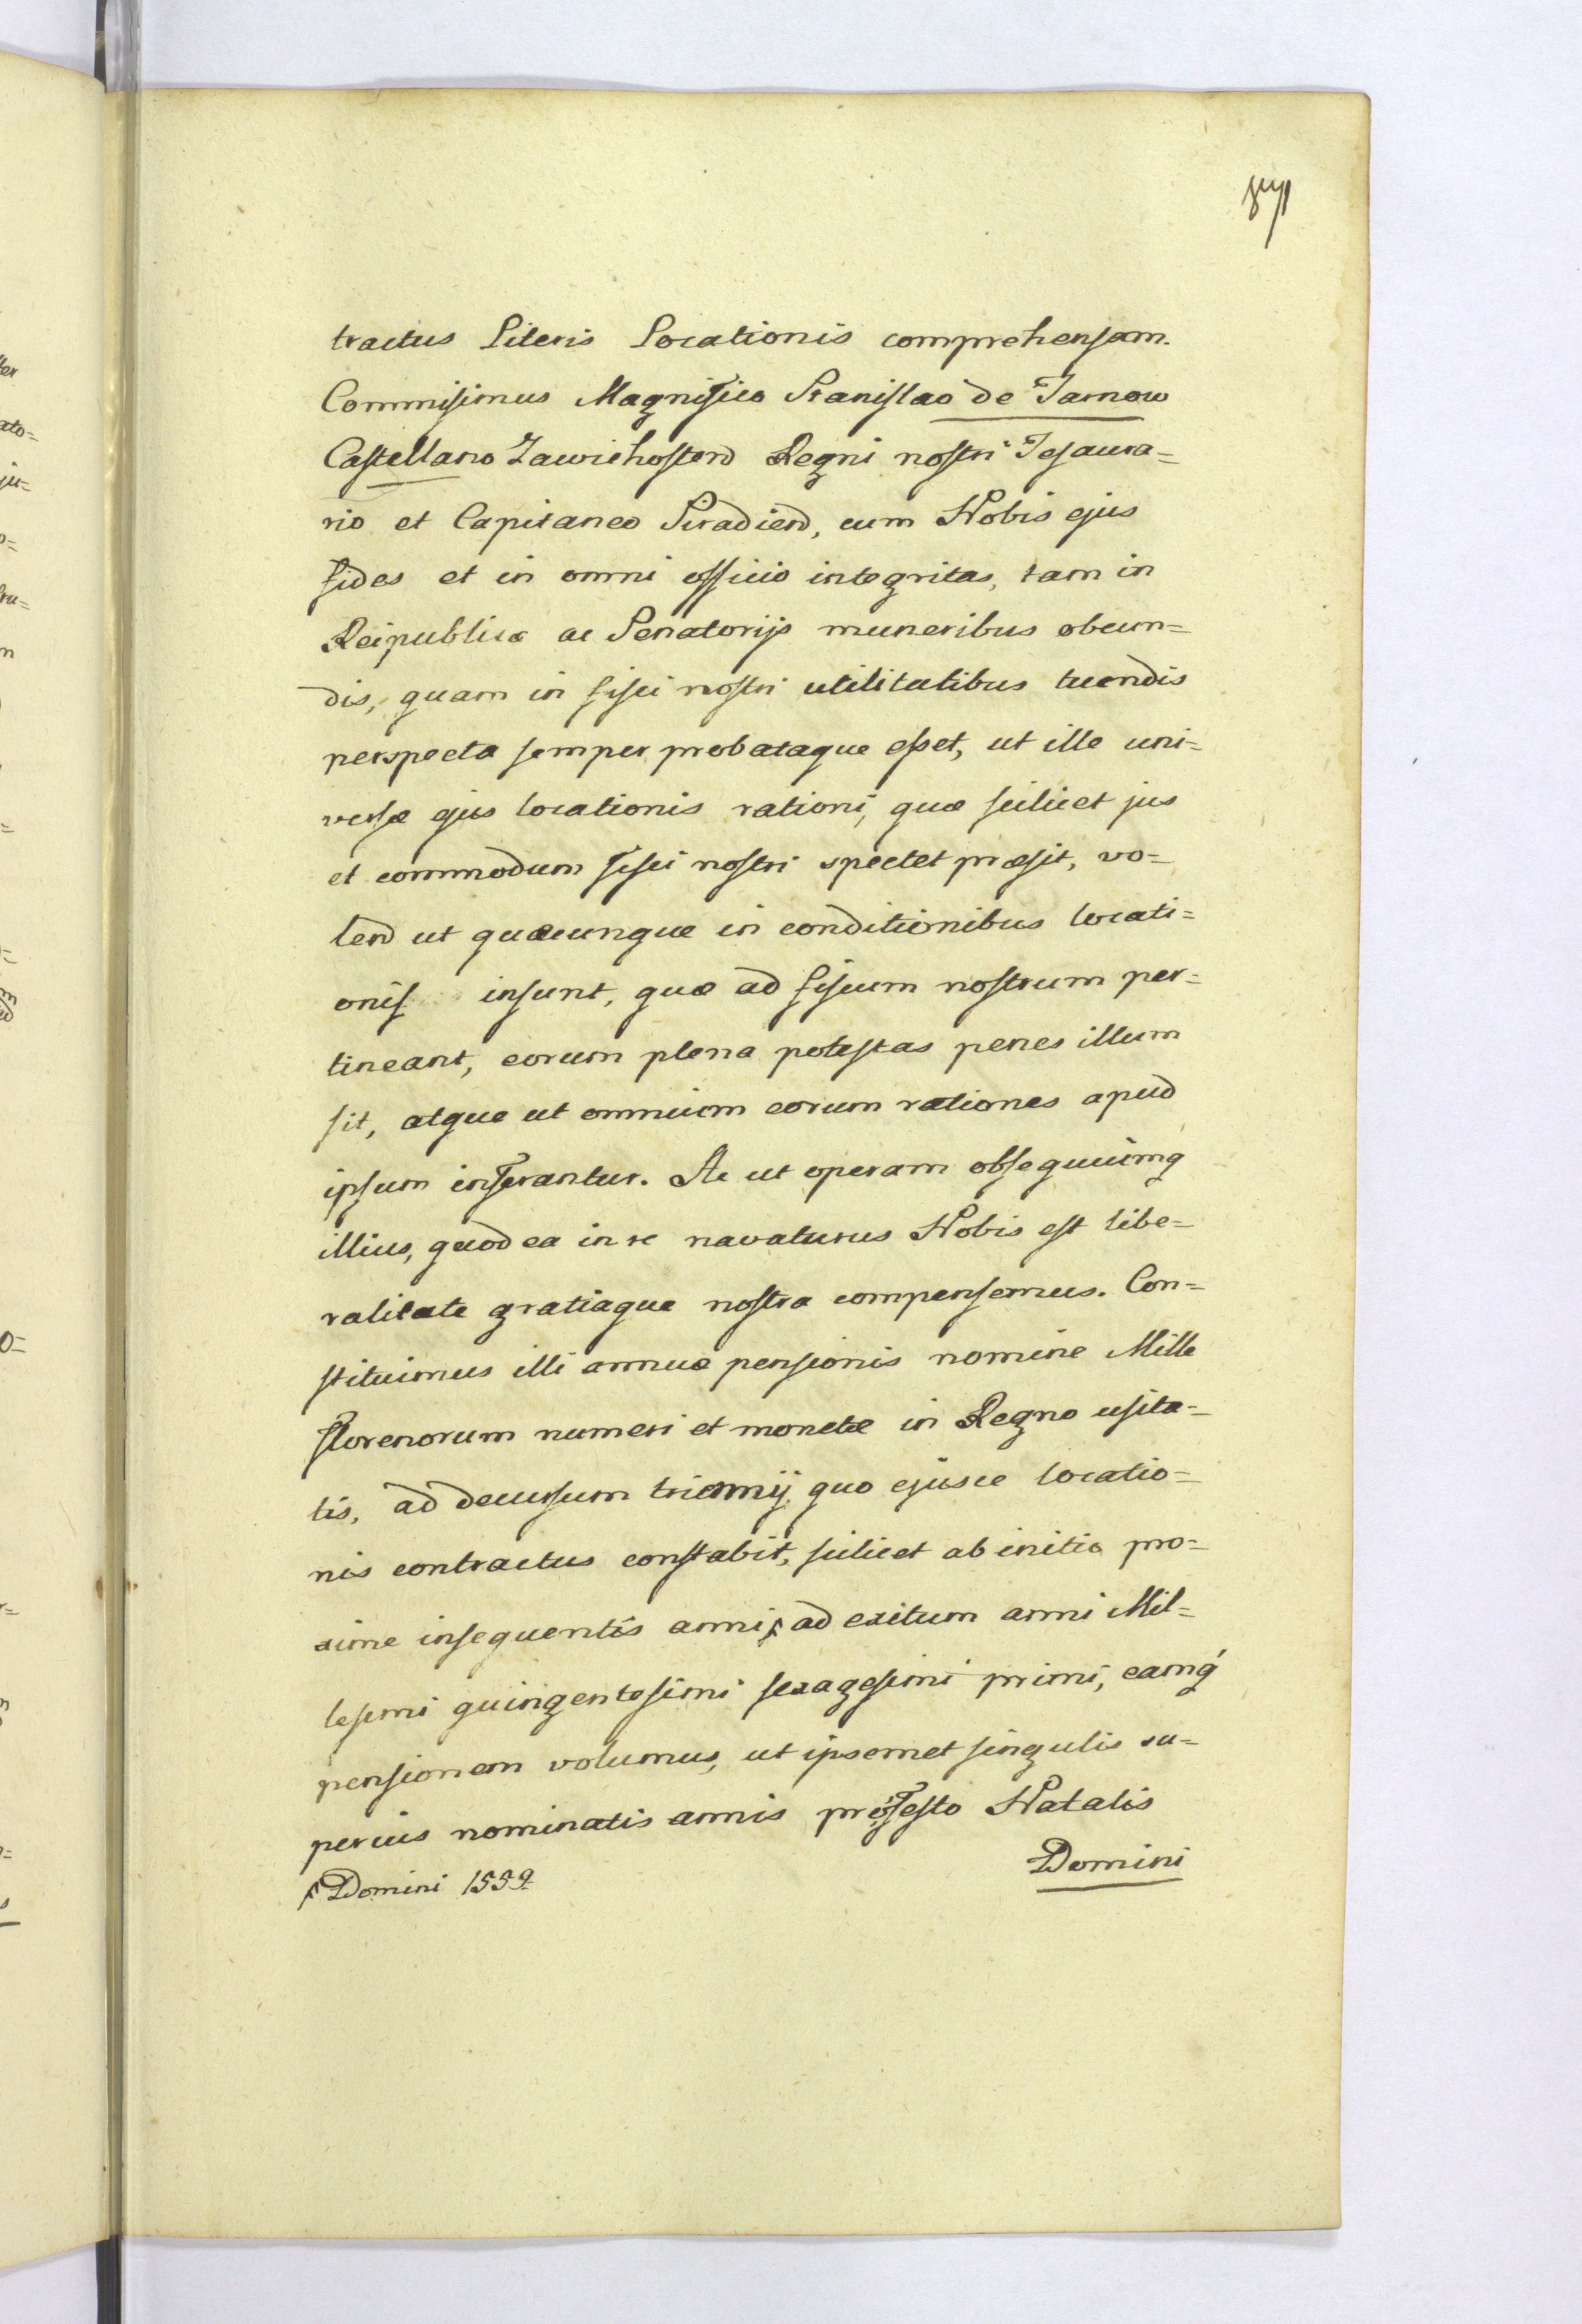 tractus Literis Locationis comprehensam.
Commisimus Magnifico Stanislao de Tarnow
Castellano Zawichosten Regni nostri Tesaura=
rio et Capitaneo Siradien, cum Nobis ejus
fides et in omni officio integritas, tam in
Reipublicæ ac Senatorijs muneribus obeun=
dis, quam in fisci nostri utilitatibus tuendis
perspecta semper probataque esset, ut ille uni=
versæ ejus locationis rationi, quæ scilicet jus
et commodum fisci nostri spectet præsit, vo=
len ut quæcunque in conditionibus locati=
onis insunt, quæ ad fiscum nostrum per=
tineant, eorum plena potestas penes illum
sit, atque ut omnium eorum rationes apud
ipsum inferantur. Ac ut operam obsequiumq
illius, quod ea in re navaturus Nobis est libe=
ralitate gratiaque nostra compensemus. Con=
stituimus illi annuæ pensionis nomine Mille
florenorum numeri et monetæ in Regno usita=
tis, ad decursum triennij quo ejusce locatio=
nis contractus constabit, scilicet ab initio pro=
xime insequentis anni ad exitum anni Mil=
lesimi quingentesimi sexagesimi primi, eamq
pensionem volumus, ut ipsemet singulis su=
perius nominatis annis pro festo Natalis
Domini
Domini 1559